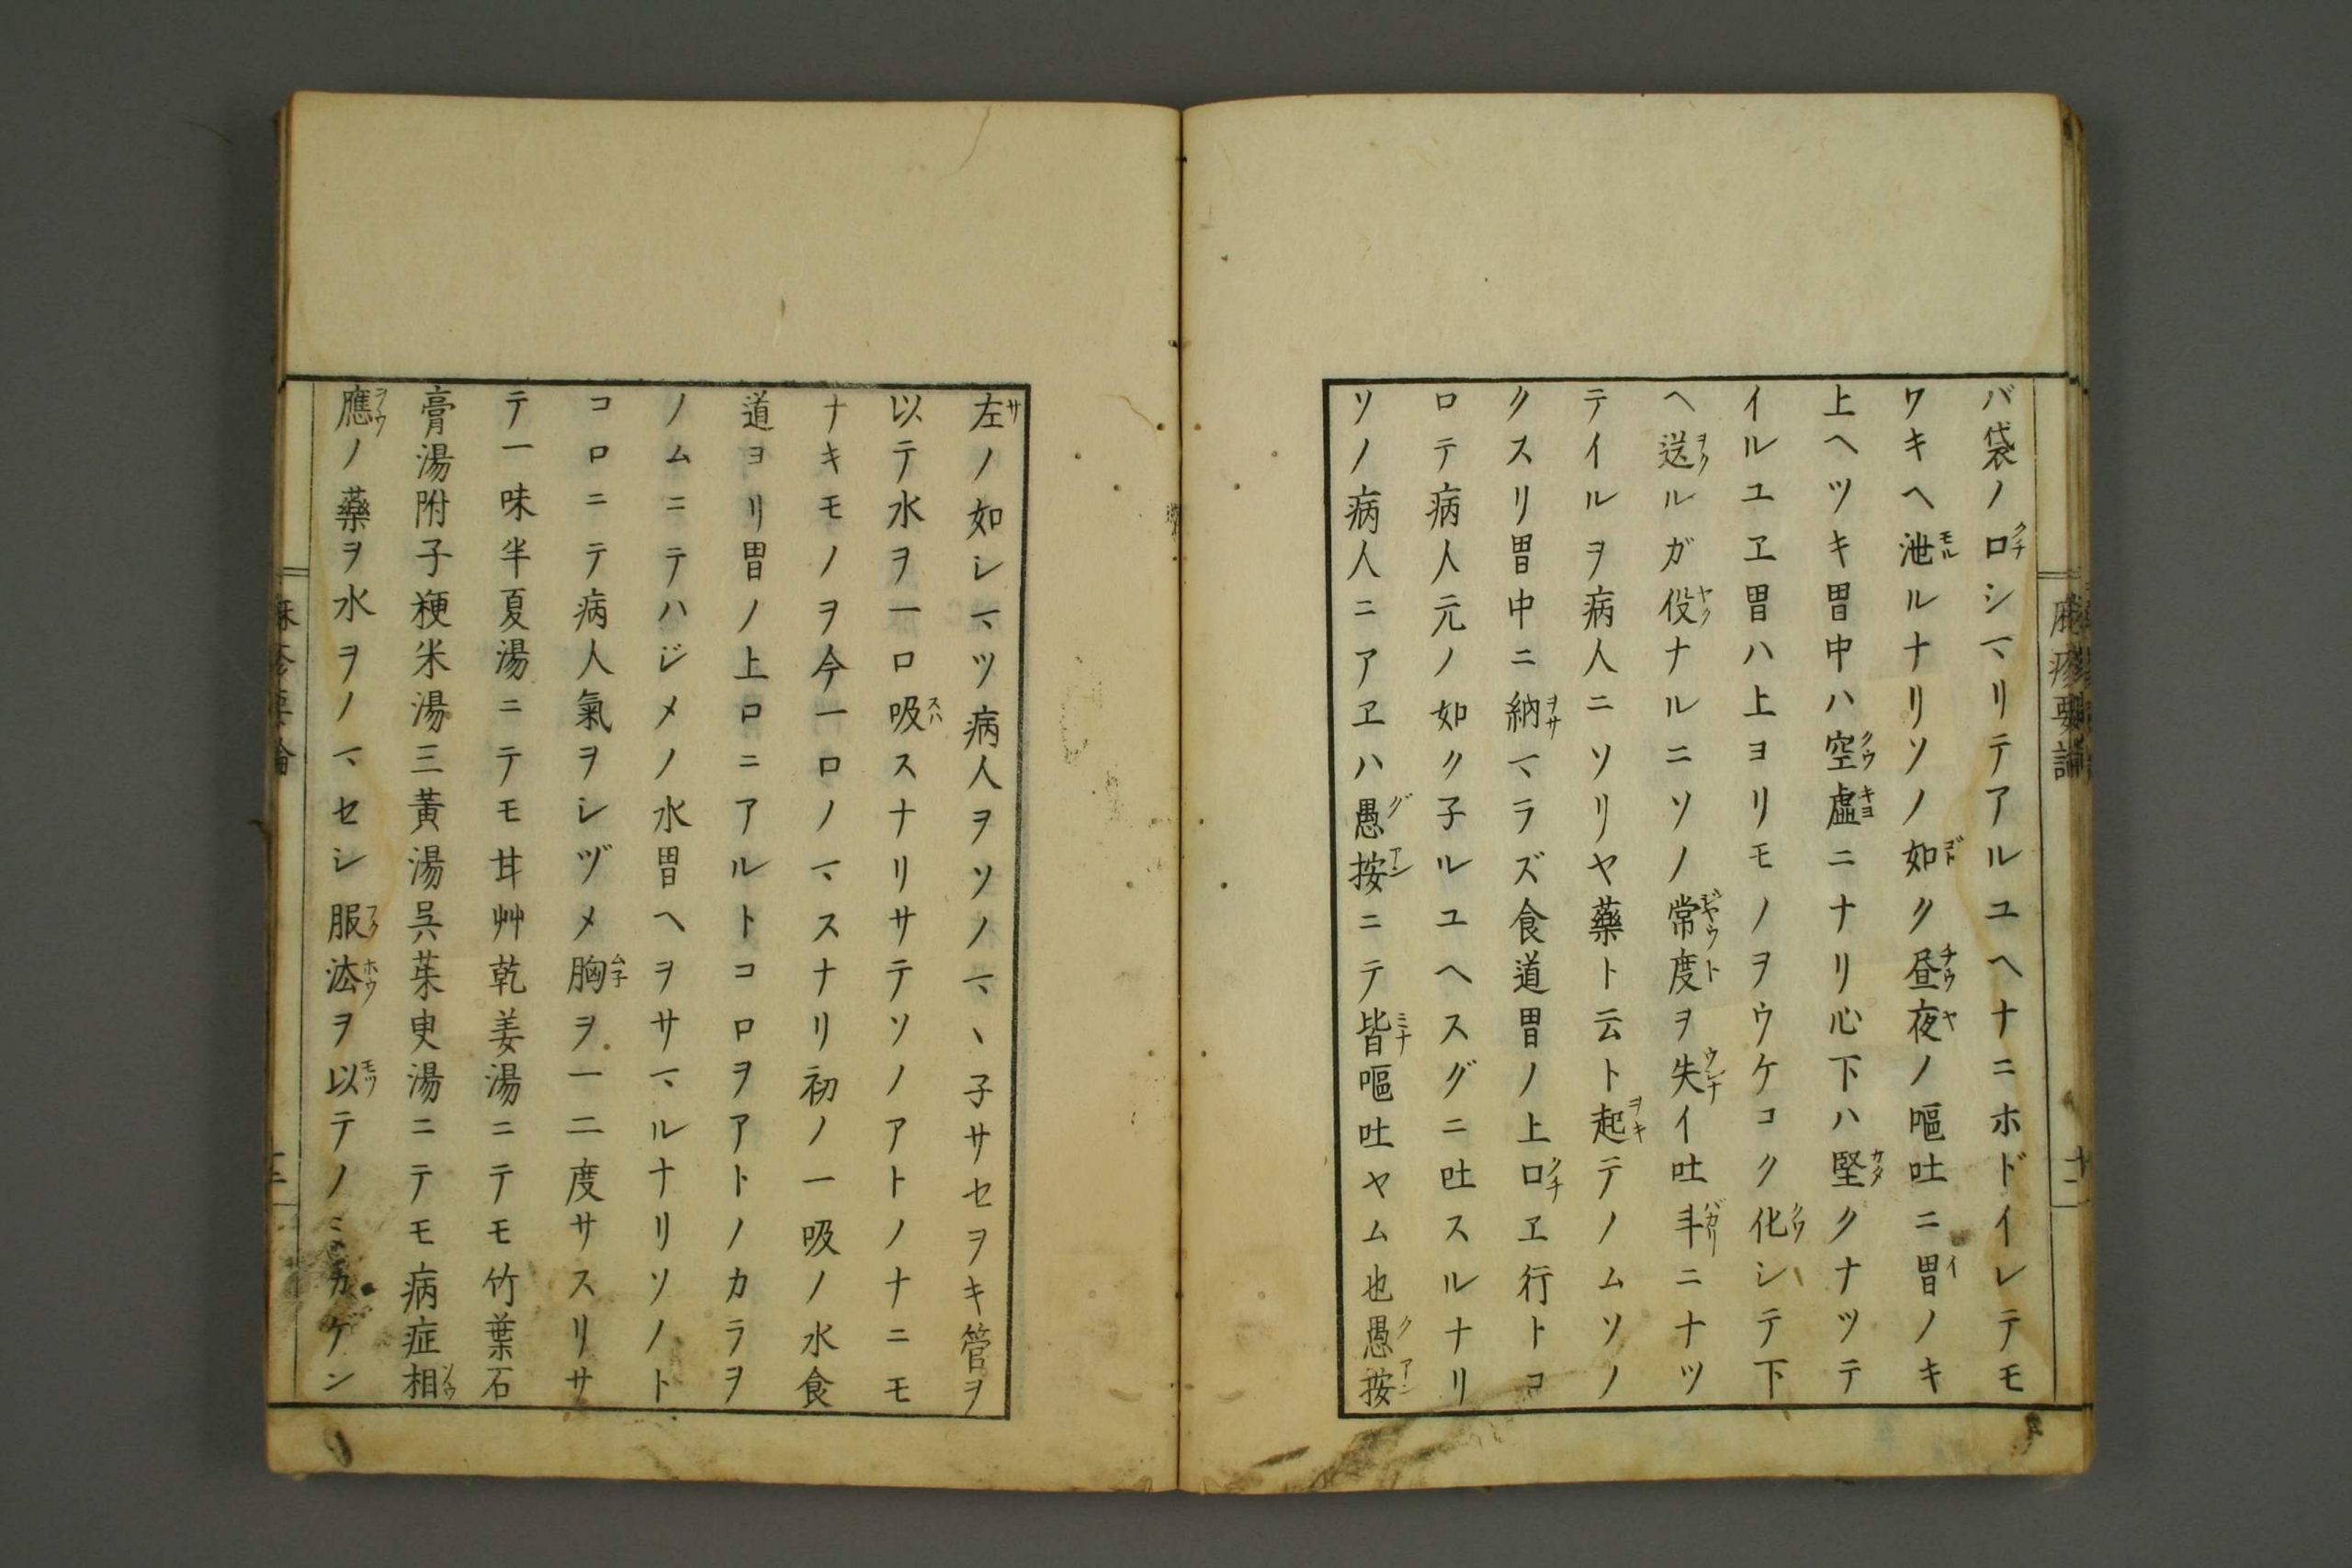 バ袋ノ口シマリテアルユヘナニホドイレテモ
ワキヘ泄ルナリソノ如ク昼夜ノ嘔吐ニ胃ノキ
上ヘツキ胃中ハ空虚ニナリ心下ハ堅クナツテ
イルユヱ胃ハ上ヨリモノヲウケコク化シテ下
ヘ送ルガ役ナルニソノ常度ヲ失イ吐斗ニナツ
テイルヲ病人ニソリヤ薬ト云ト起テノムソノ
クスリ胃中ニ納マラズ食道胃ノ上口ヱ行トコ
ロテ病人元ノ如ク子ルユヘスグニ吐スルナリ
ソノ病人ニアヱハ愚按ニテ皆嘔吐ヤム也愚按
麻疹要論
十二
左ノ如シマツ病人ヲソノマヽ子サセヲキ管ヲ
以テ水ヲ一口吸スナリサテソノアトノナニモ
ナキモノヲ今一口ノマスナリ初ノ一吸ノ水食
道ヨリ胃ノ上口ニアルトコロヲアトノカラヲ
ノムニテハジメノ水胃ヘヲサマルナリソノト
コロニテ病人氣ヲシヅメ胸ヲ一二度サスリサ
テ一味半夏湯ニテモ甘艸乾姜湯ニテモ竹葉石
膏湯附子粳米湯三黄湯呉茱萸湯ニテモ病症相
應ノ藥ヲ水ヲノマセシ服法ヲ以テノミカゲン